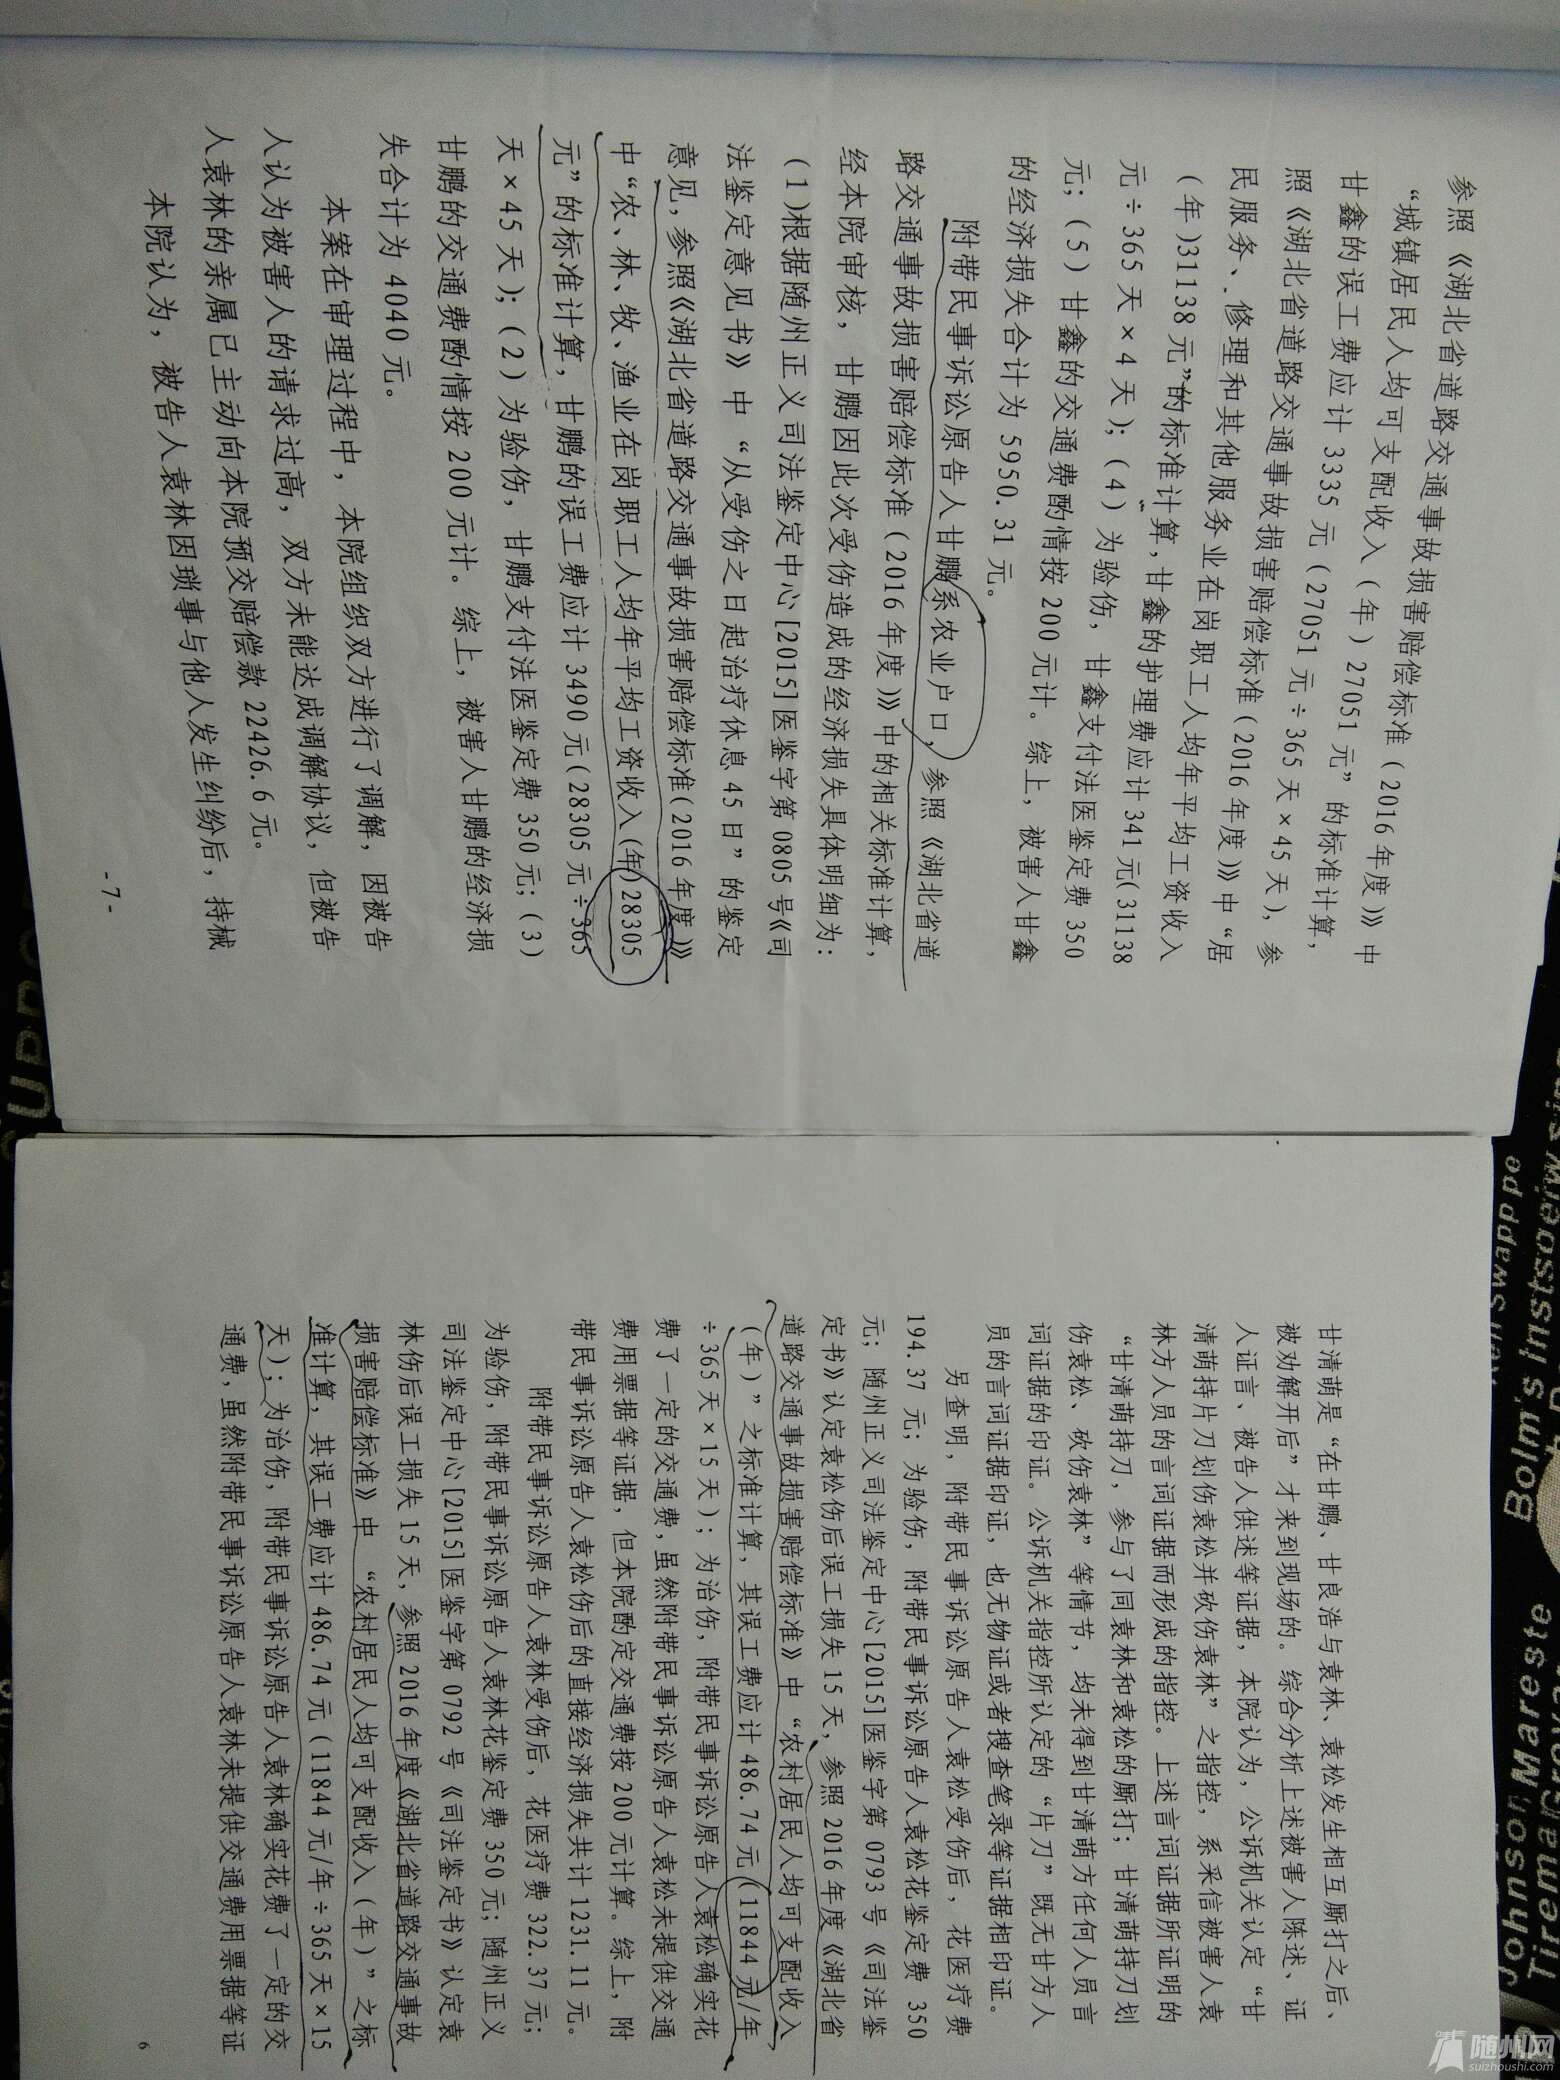 参照《湖北省道路交通事故损害赔偿标准（2016年度）》中
“城镇居民人均可支配收入（年）27051元”的标准计算，
甘鑫的误工费应计3335元（27051元÷365天×45天），参
照《湖北省道路交通事故损害赔偿标准（2016年度）》中“居
民服务、修理和其他服务业在岗职工人均年平均工资收入
（年)31138元”的标准计算，甘鑫的护理费应计341元(31138
元÷365天×4天）；（4）为验伤，甘鑫支付法医鉴定费350
元；（5）甘鑫的交通费酌情按200元计。综上，被害人甘鑫
的经济损失合计为5950.31元。
附带民事诉讼原告人甘鹏系农业户口，参照《湖北省道
路交通事故损害赔偿标准（2016年度）》中的相关标准计算，
经本院审核，甘鹏因此次受伤造成的经济损失具体明细为：
（1)根据随州正义司法鉴定中心[2015]医鉴字第0805号《司
法鉴定意见书》中“从受伤之日起治疗休息45日”的鉴定
意见，参照《湖北省道路交通事故损害赔偿标准(2016年度)》
中“农、林、牧、渔业在岗职工人均年平均工资收入(年)28305
元”的标准计算，甘鹏的误工费应计3490元(28305元÷365
天×45天）；（2）为验伤，甘鹏支付法医鉴定费350元；（3）
甘鹏的交通费酌情按200元计。综上，被害人甘鹏的经济损
失合计为4040元。
本案在审理过程中，本院组织双方进行了调解，因被告
人认为被害人的请求过高，双方未能达成调解协议，但被告
人袁林的亲属已主动向本院预交赔偿款22426.6元。
本院认为，被告人袁林因琐事与他人发生纠纷后，持械
-7-
甘清萌是“在甘鹏、甘良浩与袁林、袁松发生相互厮打之后、
被劝解开后”才来到现场的。综合分析上述被害人陈述、证
人证言、被告人供述等证据，本院认为，公诉机关认定“甘
清萌持片刀划伤袁松并砍伤袁林”之指控，系采信被害人袁
林方人员的言词证据而形成的指控。上述言词证据所证明的
“甘清萌持刀，参与了同袁林和袁松的厮打；甘清萌持刀划
伤袁松、砍伤袁林”等情节，均未得到甘清萌方任何人员言
词证据的印证。公诉机关指控所认定的“片刀”既无甘方人
员的言词证据印证，也无物证或者搜查笔录等证据相印证。
另查明，附带民事诉讼原告人袁松受伤后，花医疗费
194.37元；为验伤，附带民事诉讼原告人袁松花鉴定费350
元；随州正义司法鉴定中心[2015]医鉴字第0793号《司法鉴
定书》认定袁松伤后误工损失15天，参照2016年度《湖北省
道路交通事故损害赔偿标准》中“农村居民人均可支配收入
（年）”之标准计算，其误工费应计486.74元（11844元/年
÷365天×15天）；为治伤，附带民事诉讼原告人袁松确实花
费了一定的交通费，虽然附带民事诉讼原告人袁松未提供交通
费用票据等证据，但本院酌定交通费按200元计算。综上，附
带民事诉讼原告人袁松伤后的直接经济损失共计1231.11元。
附带民事诉讼原告人袁林受伤后，花医疗费322.37元；
为验伤，附带民事诉讼原告人袁林花鉴定费350元；随州正义
司法鉴定中心[2015]医鉴字第0792号《司法鉴定书》认定袁
林伤后误工损失15天，参照2016年度《湖北省道路交通事故
损害赔偿标准》中“农村居民人均可支配收入（年）”之标
准计算，其误工费应计486.74元（11844元/年÷365天×15
天）；为治伤，附带民事诉讼原告人袁林确实花费了一定的交
通费，虽然附带民事诉讼原告人袁林未提供交通费用票据等证
6
随州网
suizhoushi.com